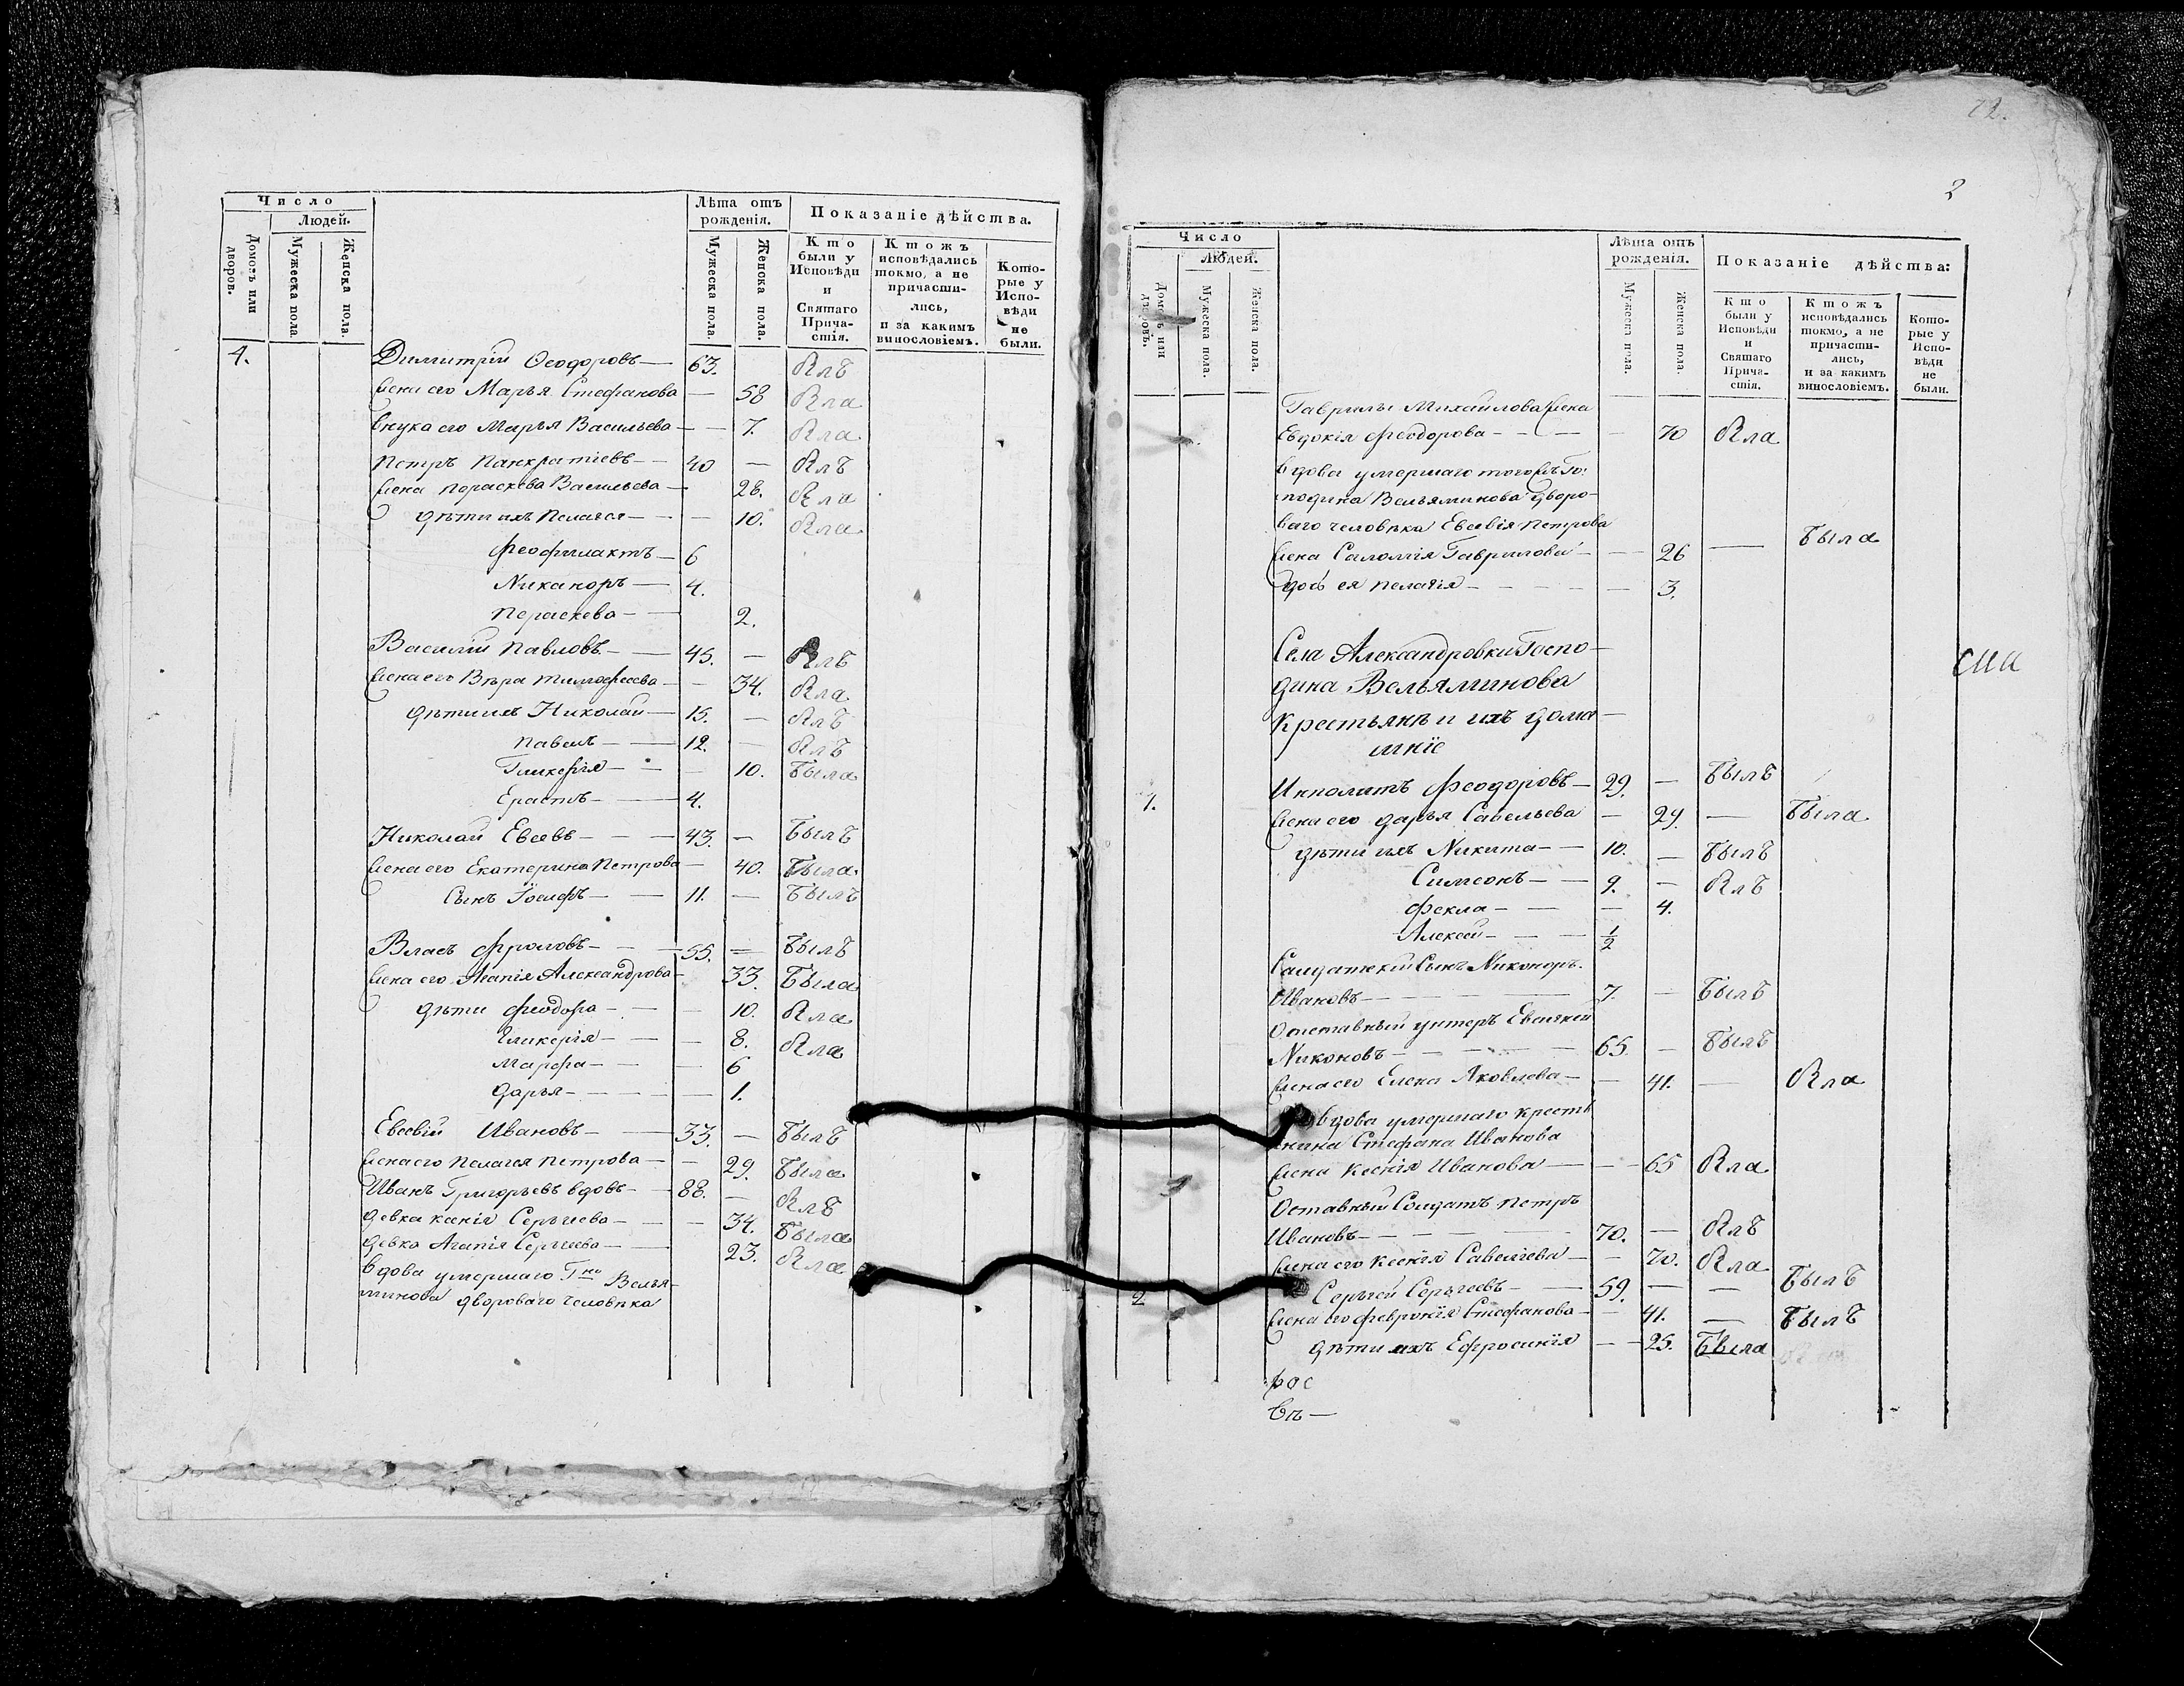 Число
Людей.
Домовъ или дворовъ.
Мужеска пола.
Женска пола.
Лѣта отъ рожденія.
Мужеска пола.
Женска пола.
Показаніе дѣйства.
Кто были у Исповѣди и Святаго Прича-стія.
Ктожъ исповѣдались токмо, а не причасти-лись, и за какимъ винословіемъ.
Кото-рые у Испо-вѣди не были.
4. Димитрій Ѳеодоровъ — 63.
Жена его Марья Стефанова — 58
Внука его Марья Васильева — — 7.
Петръ Панкратіевъ — 40 —
Жена Пораскева Васильева — 28.
дѣти ихъ Пелагея — — 10.
Феофилактъ — 6
Никаноръ — 4.
Пераскева — 2.
Василій Павловъ — 45. —
Жена его Вѣра Тимофеева — — 34.
дѣти ихъ Николай — 15. —
Павелъ — 12. —
Гликерія — — 10. Была
Ерастъ — 4.
Николай Евсевъ — — 43. — Былъ
Жена его Екатерина Петрова — 40. Была
Сынъ Іосифъ — — 11. — Былъ
Власъ Фроловъ — — 55. — Былъ
Жена его Агапія Александрова — 33. Была
дѣти Феодора — — 10.
Гликерія — — 8.
Марфа — — 6
Дарья — — — 1.
Евсевій Ивановъ — — 33. — Былъ
Жена его Пелагея Петрова — — 29. Была
Иванъ Григорьевъ вдовъ — 88. —
девка Ксенія Сергіева — — 34. Была
девка Агапія Сергіева — — 23.
Вдова умершаго Гна Велья-
минова дворового человѣка
72.
2
Число
Людей.
Домовъ или дворовъ.
Мужеска пола.
Женска пола.
Лѣта отъ рожденія.
Мужеска пола.
Женска пола.
Показаніе дѣйства:
Кто были у Исповѣди и Святаго Прича-стія.
Ктожъ исповѣдались токмо, а не причасти-лись, и за какимъ винословіемъ.
Кото-рые у Испо-вѣди не были.
Гаврилы Михайлова Жена
Евдокія Феодорова — — 70
Вдова умершаго
Вельяминова дворо-
ваго человѣка Евсевія Петрова
Жена Саломія Гаврилова — — 26 — Была
дочь ея Пелагія — — 3.
Села Александровки Госпо-
дина Вельяминова
Крестьянѣ и ихъ дома-
шніе
1. Ипполитъ Феодоровъ — 29. — Былъ
Жена его Дарья Савельева — 29. — Была
дѣти ихъ Никита — 10. — Былъ
Симеонъ — 9. —
Фекла — — 4.
Алексей — — 1/2
Салдатскій Сынъ Никоноръ
Ивановъ — 7. — Былъ
унтеръ
Никоновъ — 65. — Былъ
Жена его Елена Яковлева — — 41. —
Вдова умершаго крестья
нина Стефана Иванова
Жена Ксенія Иванова — — 65
Отставный Солдатъ Петръ
Ивановъ — 70. —
Жена его Ксенія Савелиева — — 70.
2 Сергій Сергіевъ — 59. — — Былъ
Жена его Февронія Стефанова — 41. — Былъ
дѣти ихъ Ефросинія — — 25. Была
рос
Въ —